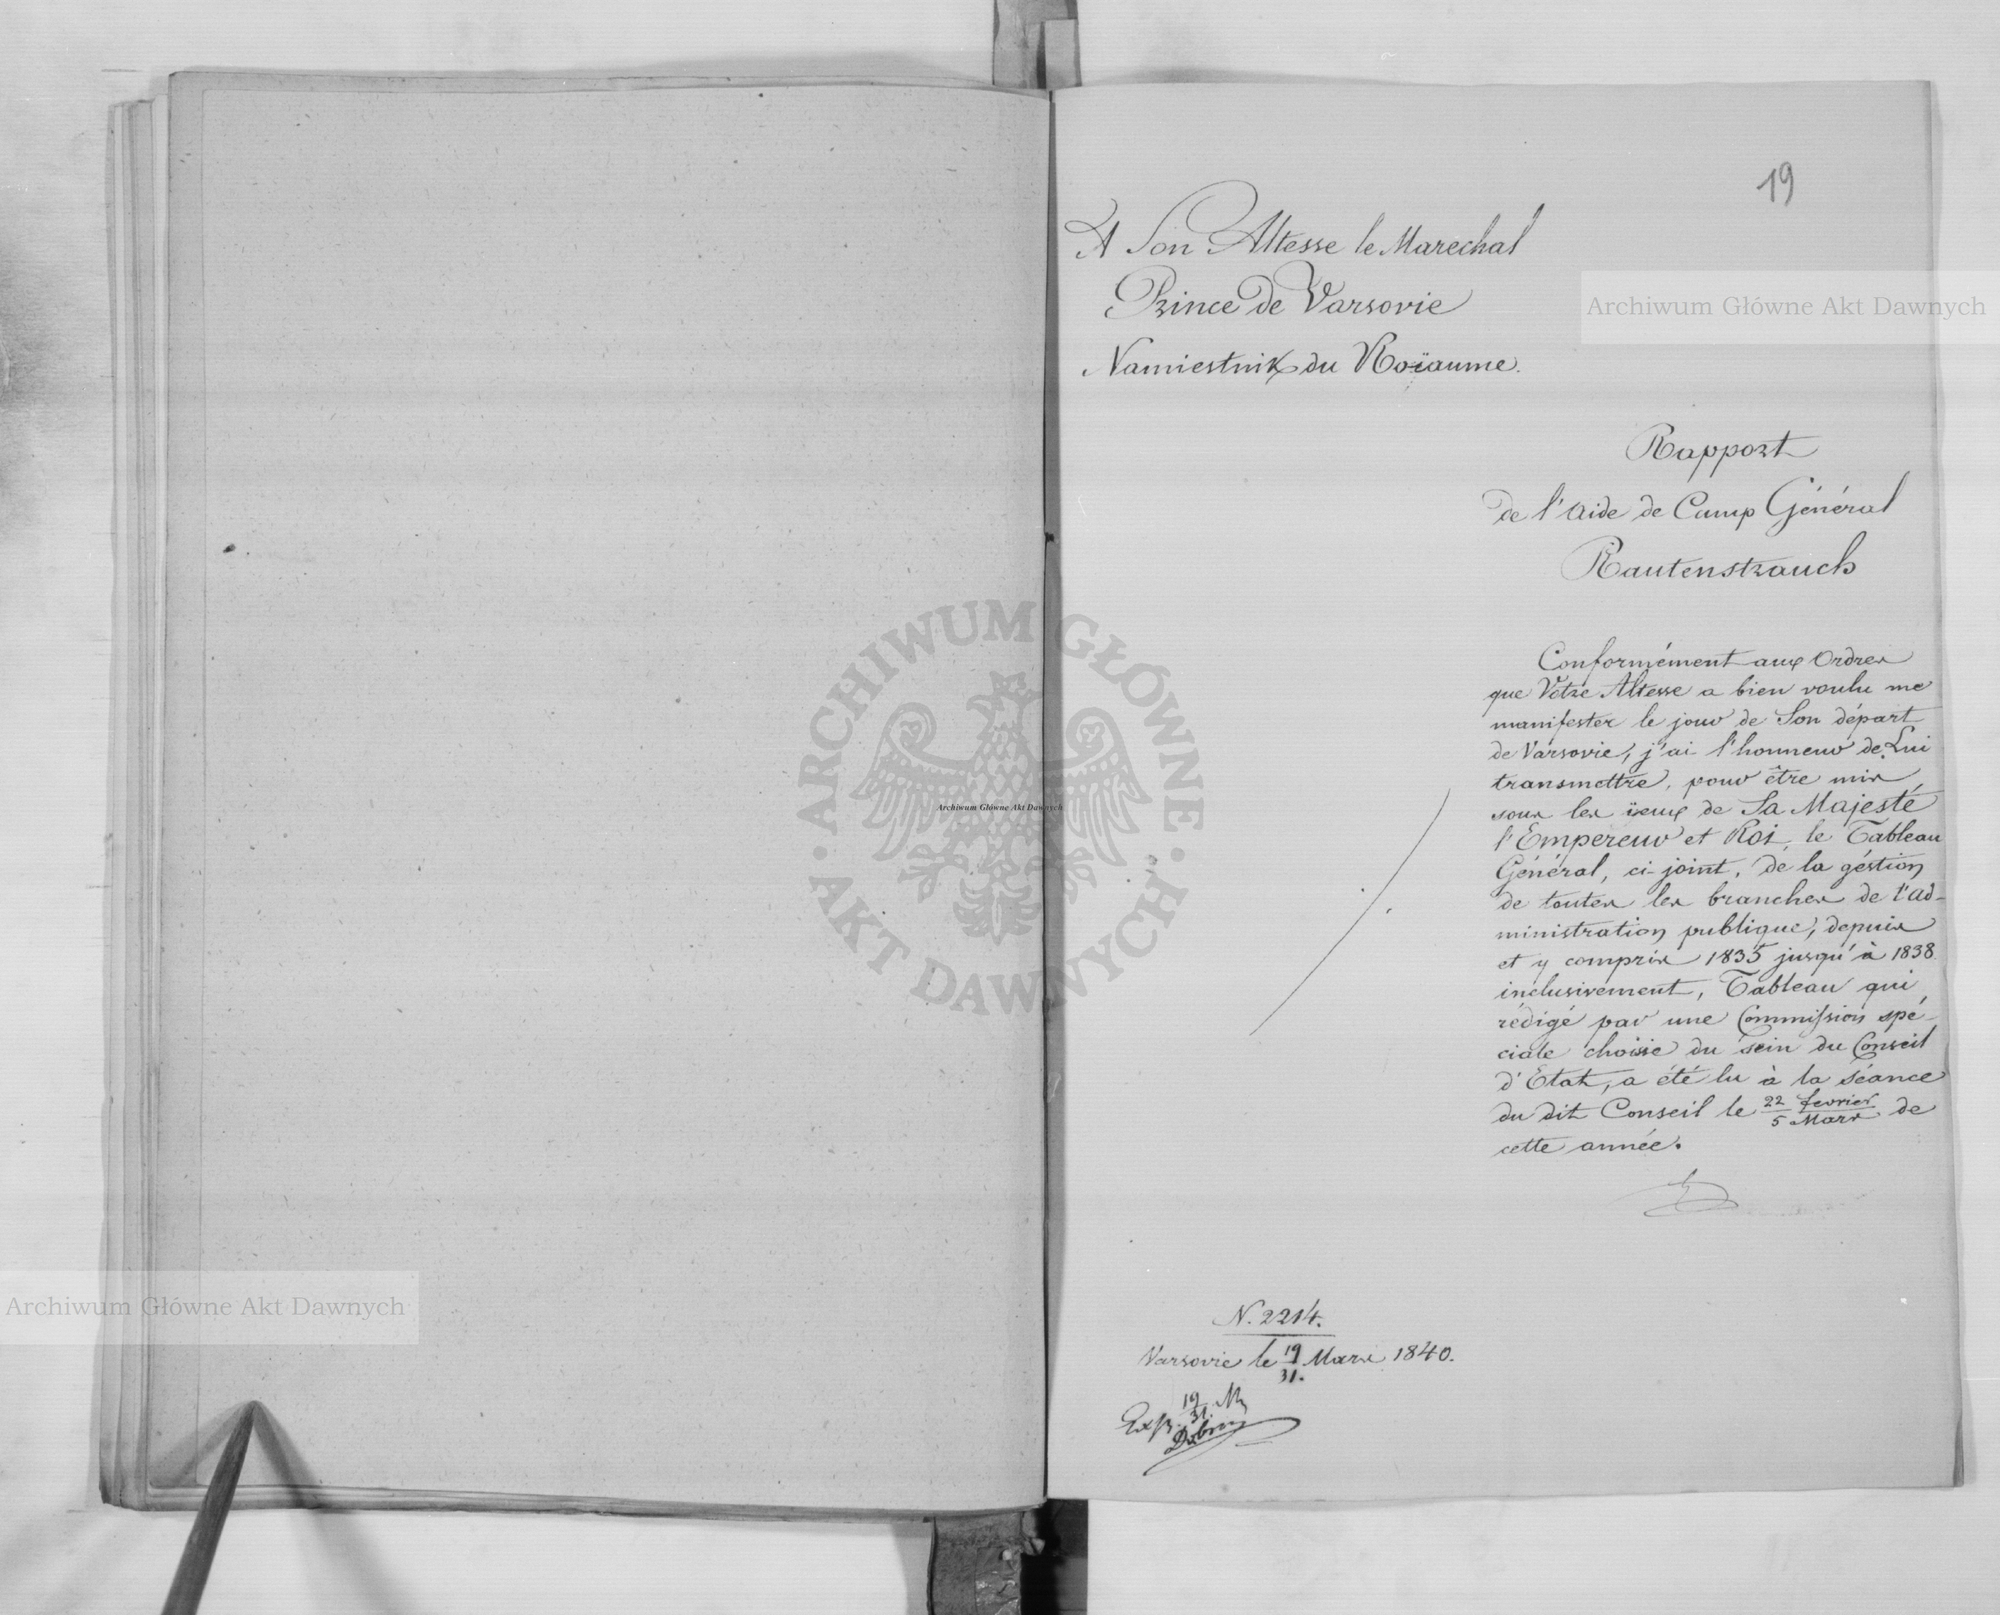 19
A Son Altesse le Marechal
Prince de Varsovie
Namiestnik du Roïaume.
Rapport
de l'Aide de Camp Général
Rautenstrauch
Conformément aux Ordres
que Votre Altesse a bien voulu me
manifester le jour de Son départ
de Varsovie, j'ai l'honneur de Lui
transmettre, pour être mis
sous les ïeux de Sa Majesté
l'Empereur et Roi, le Tableau
Général, ci-joint, de la géstion
de toutes les branches de l'Ad-
ministration publique, depuis
et y compris 1835 jusqu'à 1838
inclusivement, Tableau qui
rédigé par une Commission spé-
ciale choisie du sein du Conseil
d'Etat, a été lu à la séance
du dit Conseil le 22 fevrier / 5 Mars de
cette année.
N. 2214.
Varsovie le 19/31. Mars 1840.
Exp. 19/31. M
Archiwum Główne Akt Dawnych
Archiwum Główne Akt Dawnych
Archiwum Główne Akt Dawnych
ARCHIWUM GŁÓWNE · AKT DAWNYCH ·